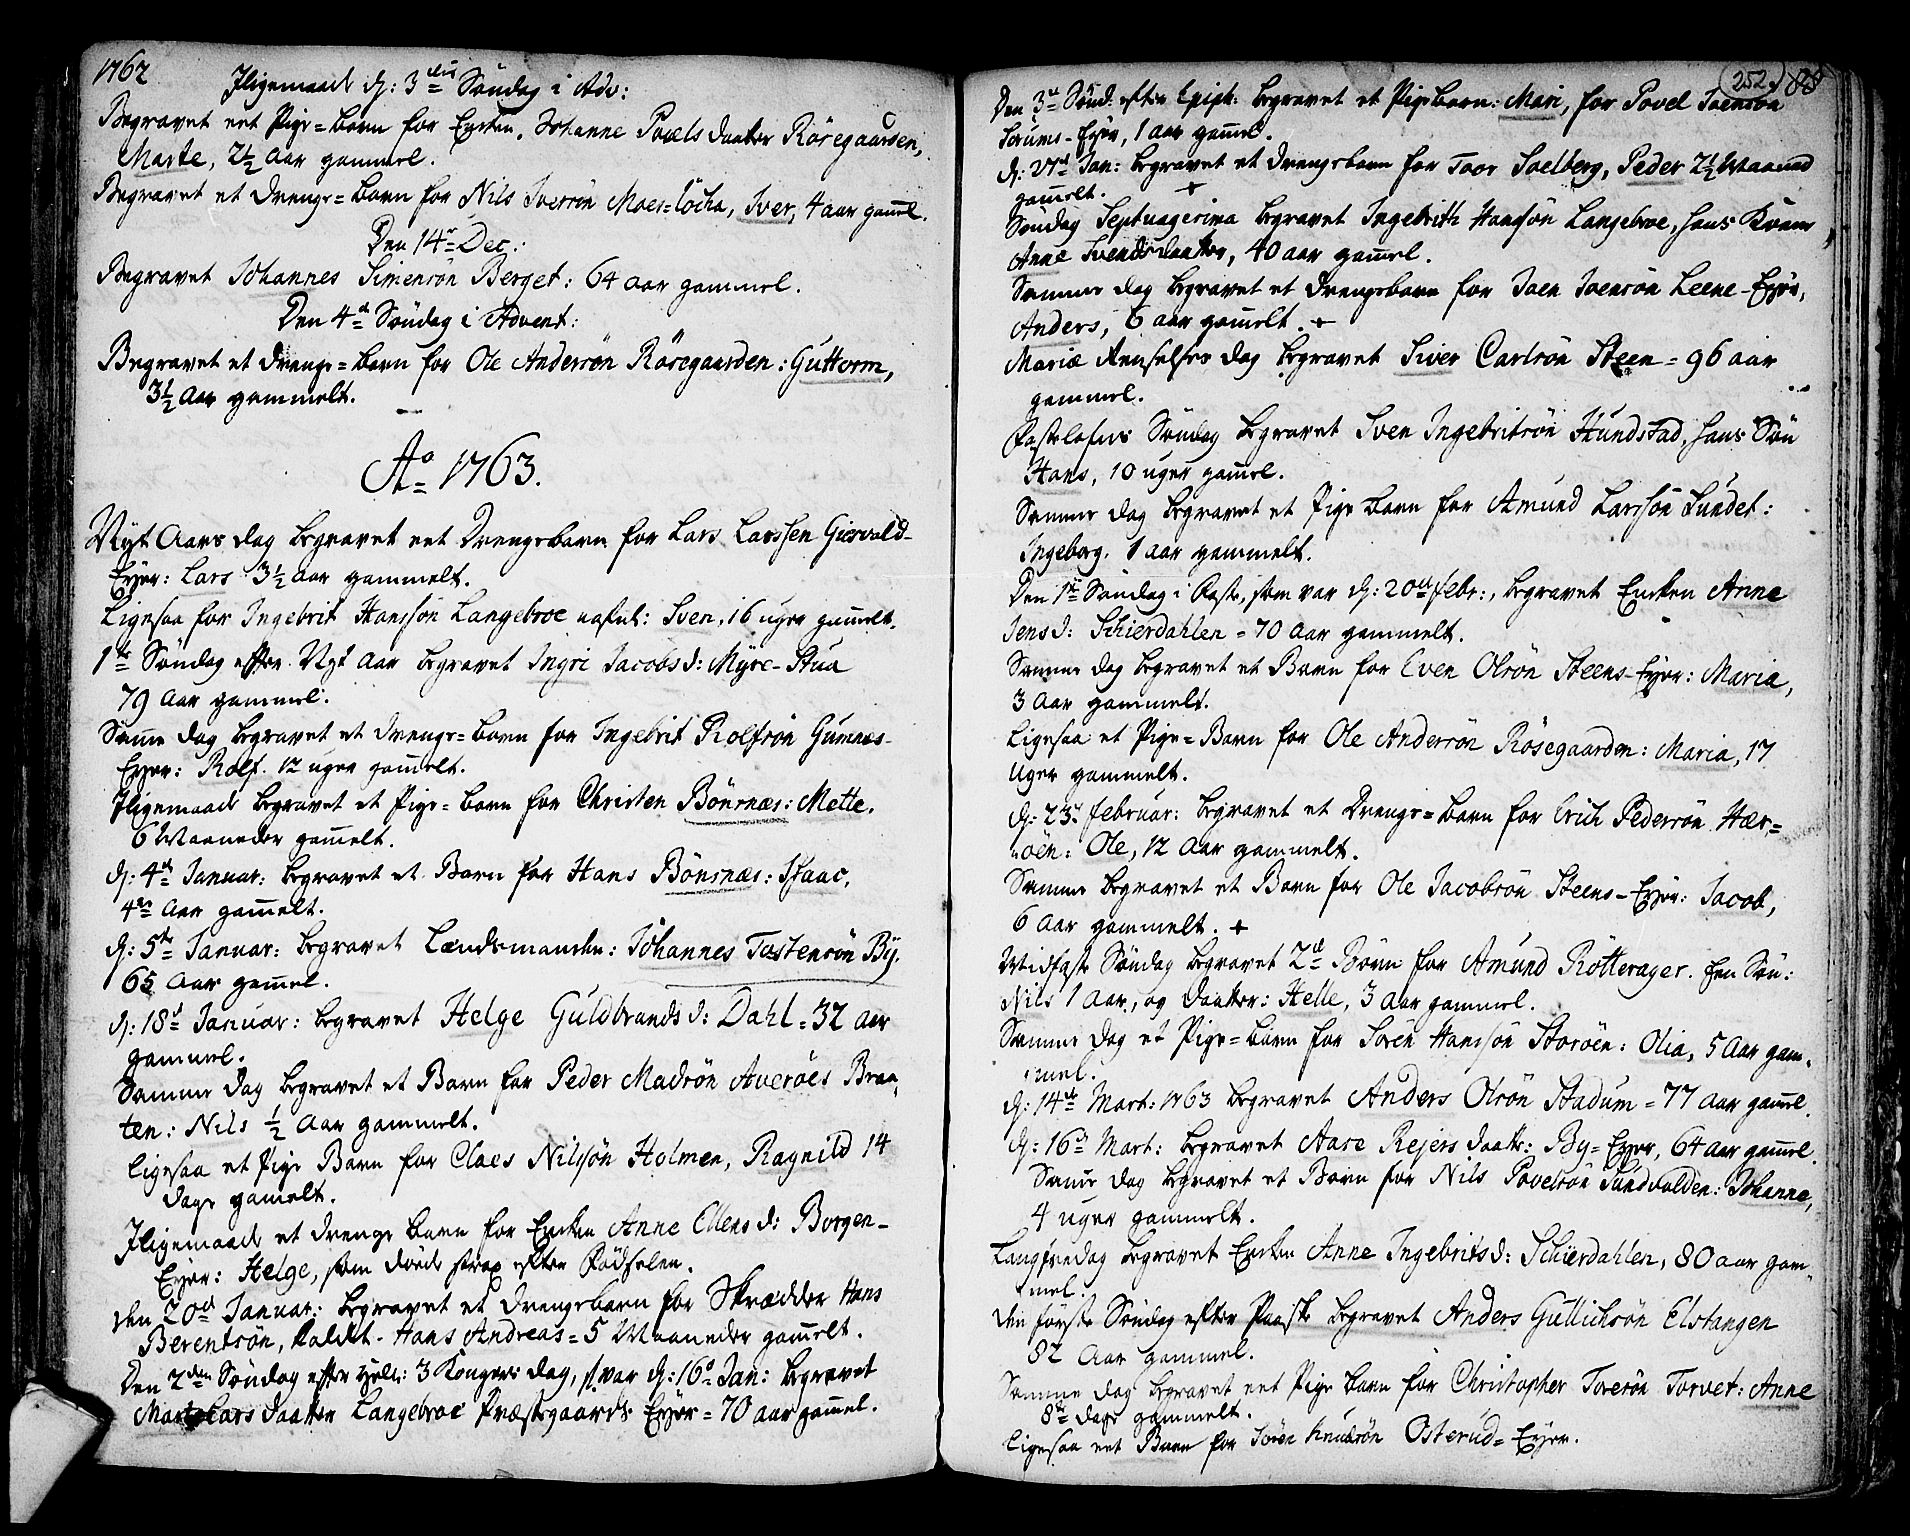 1762
Iligemaade d: 3die Söndag i Adv:
Begravet eet Pige=barn for Encken, Johanne Povels daatter Rösegaarden,
Marte, 2½ Aar gammel.
Begravet et Drenge=barn for Nils Iversön Moes=, Iver, 4 aar gaml.
Den 14de Dec:
Begravet Johannes Simensön Berget: 64 aar gammel.
Den 4de Söndag i Advent:
Begravet et Drenge=barn for Ole Andersön Rösegaarden: Guttorm,
3½ Aar gammelt.
Ao 1763.
Nyt Aars dag begravet eet Drengebarn for Lars Larssen Giesvold-
Eyer: Lars 3½ aar gammelt.
Ligesaa for Ingebrit Hanssön Langebroe nafnl: Sven, 16 uger gamelt.
1te Söndag efter Nyt Aar begravet Ingri Jacobsd: Myre-Stua
79 Aar gammel.
Same dag begravet et Drenge=barn for Ingebrit Rolfsön Gumnes-
Eyer: Rolf. 12 uger gamelt.
Iligemaade begravet et Pige=barn for Christen Bönsnæs: Mette,
6 Maaneder gamelt.
d: 4de Januar: begravet et Barn for Hans Bönsnæs: Isaac,
4re Aar gamelt.
d: 5te Januar: begravet Lændsmanden: Johannes Tostensön By,
65 Aar gamel.
d: 18de Januar: begravet Helge Guldbrandsd: Dahl = 32 aar
gammel.
Samme dag begravet et Barn for Peder Madsön Averöes Braa-
ten: Nils ½ Aar gammelt.
Ligesaa et Pige Barn for Claes Nilssön Holmen, Ragnild 14
dage gamelt.
Iligemaade et Drenge barn for Encken Anne Ellensd: Borgen-
Eyer: Helge, som döde strax efter Födselen.
Den 20de Januar: begravet et Drengebarn for Skrædder Hans
Berentsön, kaldet Hans Andreas = 5 Maaneder gamelt.
Den 2den Söndag efter Hell: 3 Kongers dag, s. var d: 16de Jan: begravet
Marte Lars daatter Langebroe Præstegaards Eyer = 70 aar gamel.
252.
Den 3de Sönd: efter Epiph: begravet et Pigebarn: Mari, for Povel Joensön
Sorums-Eyer, 1 aar gamel.
d: 27de Jan: begravet et Drengebarn for Toor Soelberg, Peder 2½ Maaned
gamelt. +
Söndag Septuagesima begravet Ingebrith Hanssön Langebroe, hans Kone
Anne Svendsdaatter, 40 aar gamel.
Samme dag begravet et Drengebarn for Joen Joensön Leene-Eyer,
Anders, 6 aar gamelt. +
Mariæ Renselses dag begravet Siver Carlsön Steen = 96 aar
gammel.
Fastelafns Söndag begravet Sven Ingebritsön Hundstad, hans Sön
Hans, 10 uger gamel.
Samme dag begravet et Pige barn for Amund Larssön Sundet:
Ingeborg. 1 aar gammelt.
Den 1te Söndag i Faste, som var d: 20de febr:, begravet Encken Anne
Jensd: Schierdahlen = 70 Aar gammelt.
Samme dag begravet et Barn for Even Olsön Steens-Eyer: Maria,
3 Aar gammelt.
Ligesaa et Pige=Barn for Ole Andersön Rösegaarden: Maria, 17
Uger gammelt.
d: 23de februar: begravet et Drenge=barn for Erich Pedersön Hær=
öen: Ole, 12 Aar gammelt.
Samme begravet et Barn for Ole Jacobsön Steens-Eyer: Jacob,
6 Aar gammelt. +
Midfaste Söndag begravet 2de Börn for Amund Rötterager. Een Sön:
Nils 1 Aar, og daatter: Helle, 3 Aar gammel.
Samme dag et Pige=barn for Sören Hanssön Storöen: Olia, 5 Aar gam-
mel.
d: 14de Mart: 1763 begravet Anders Olsön Stadum = 77 aar gamel.
d: 16de Mart: begravet Aase Rejers daatt: By=Eyer, 64 aar gamel.
Same dag begravet et Barn for Nils Povelsön Sundvolden: Johanne,
4 uger gammelt.
Langfredag begravet Encken Anne Ingebritsd: Schierdahlen, 80 aar gam-
mel.
Den förste Söndag efter Paaske begravet Anders Gullichsön Elstangen
82 Aar gammel.
Samme dag begravet eet Pige barn for Christopher Toresön Torvet: Anne
8te dage gammelt.
Ligesaa eet Barn for Sören Knudsön Osterud=Eyer.